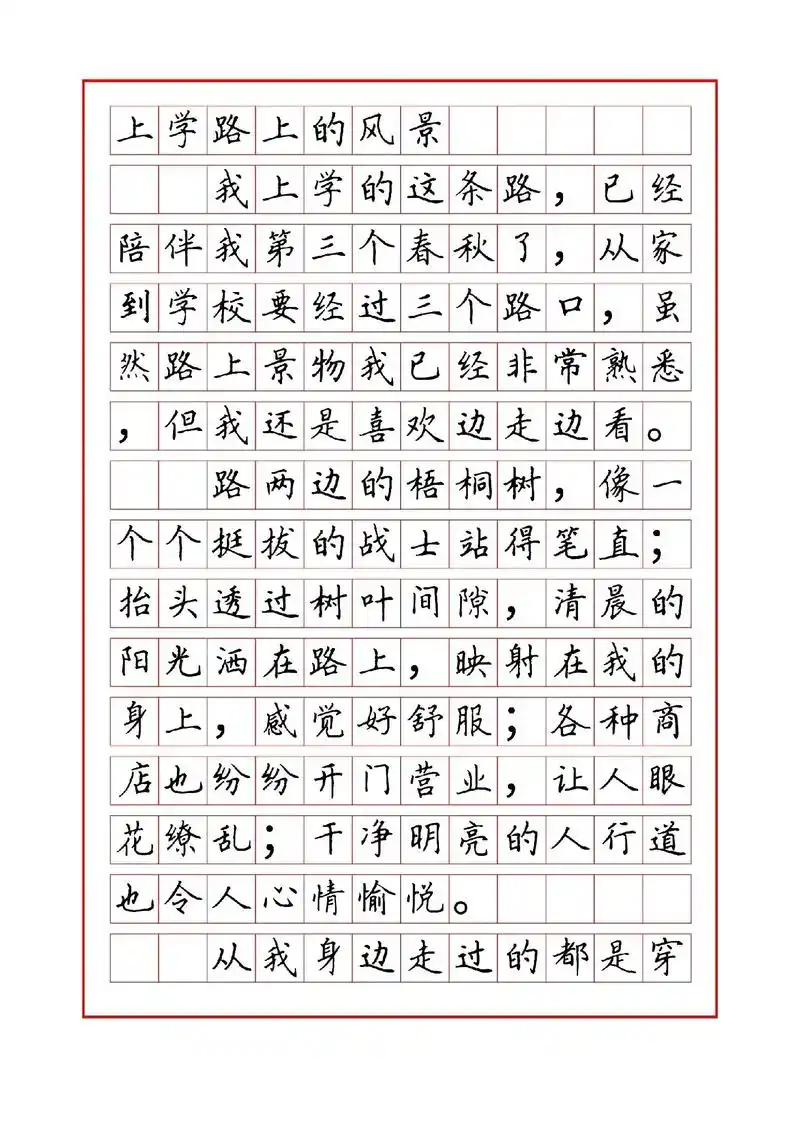 上学路上的风景
我上学的这条路，已经
陪伴我第三个春秋了，从家
到学校要经过三个路口，虽
然路上景物我已经非常熟悉
，但我还是喜欢边走边看。
路两边的梧桐树，像一
个个挺拔的战士站得笔直；
抬头透过树叶间隙，清晨的
阳光洒在路上，映射在我的
身上，感觉好舒服；各种商
店也纷纷开门营业，让人眼
花缭乱；干净明亮的人行道
也令人心情愉悦。
从我身边走过的都是穿